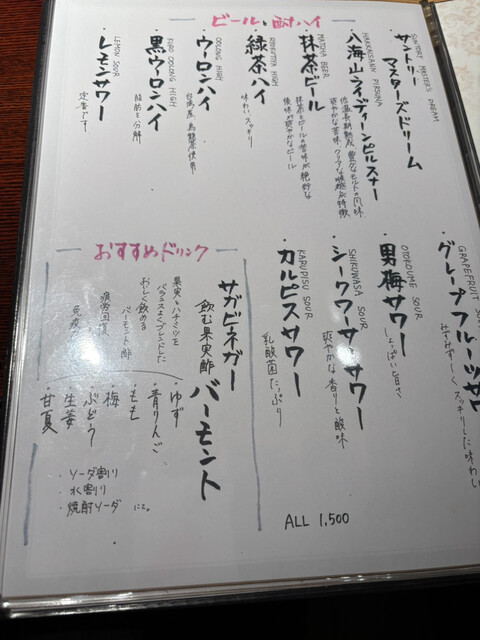 ビール、酎ハイ
・サントリー
マスターズドリーム
・八海山ライディーンピルスナー
HAKKAISAN
低温長期熟成 豊かなモルトの風味
爽やかな苦味 クリアな喉越が特徴
・抹茶ビール
MATCHA BEER
抹茶とビールの苦味が絶妙な
後味が爽やかなビール
・緑茶ハイ
味わいスッキリ
・ウーロンハイ
OOLONG HIGH
台湾産 烏龍茶使用
・黒ウーロンハイ
KURO OOLONG HIGH
脂肪を分解
・レモンサワー
LEMON SOUR
定番です。
・グレープフルーツサ
GRAPEFRUIT SOUR
みずみずしく、スッキリした味わい
・男梅サワー
OTOKOUME SOUR
しょっぱい旨さ
・シークワーサーサワー
SHIKUWASA SOUR
爽やかな香りと酸味
・カルピスサワー
KARUPISU SOUR
乳酸菌たっぷり
ALL 1,500
おすすめドリンク
サガビネガー
飲む果実酢 バーモント
果実とハチミツを
バランスよくブレンドした
おいしく飲める
バーモント酢
疲労回復
免疫
・ゆず
・青りんご
・もも
・梅
・ぶどう
・生姜
・甘夏
・ソーダ割り
・水割り
・焼酎ソーダ にて。